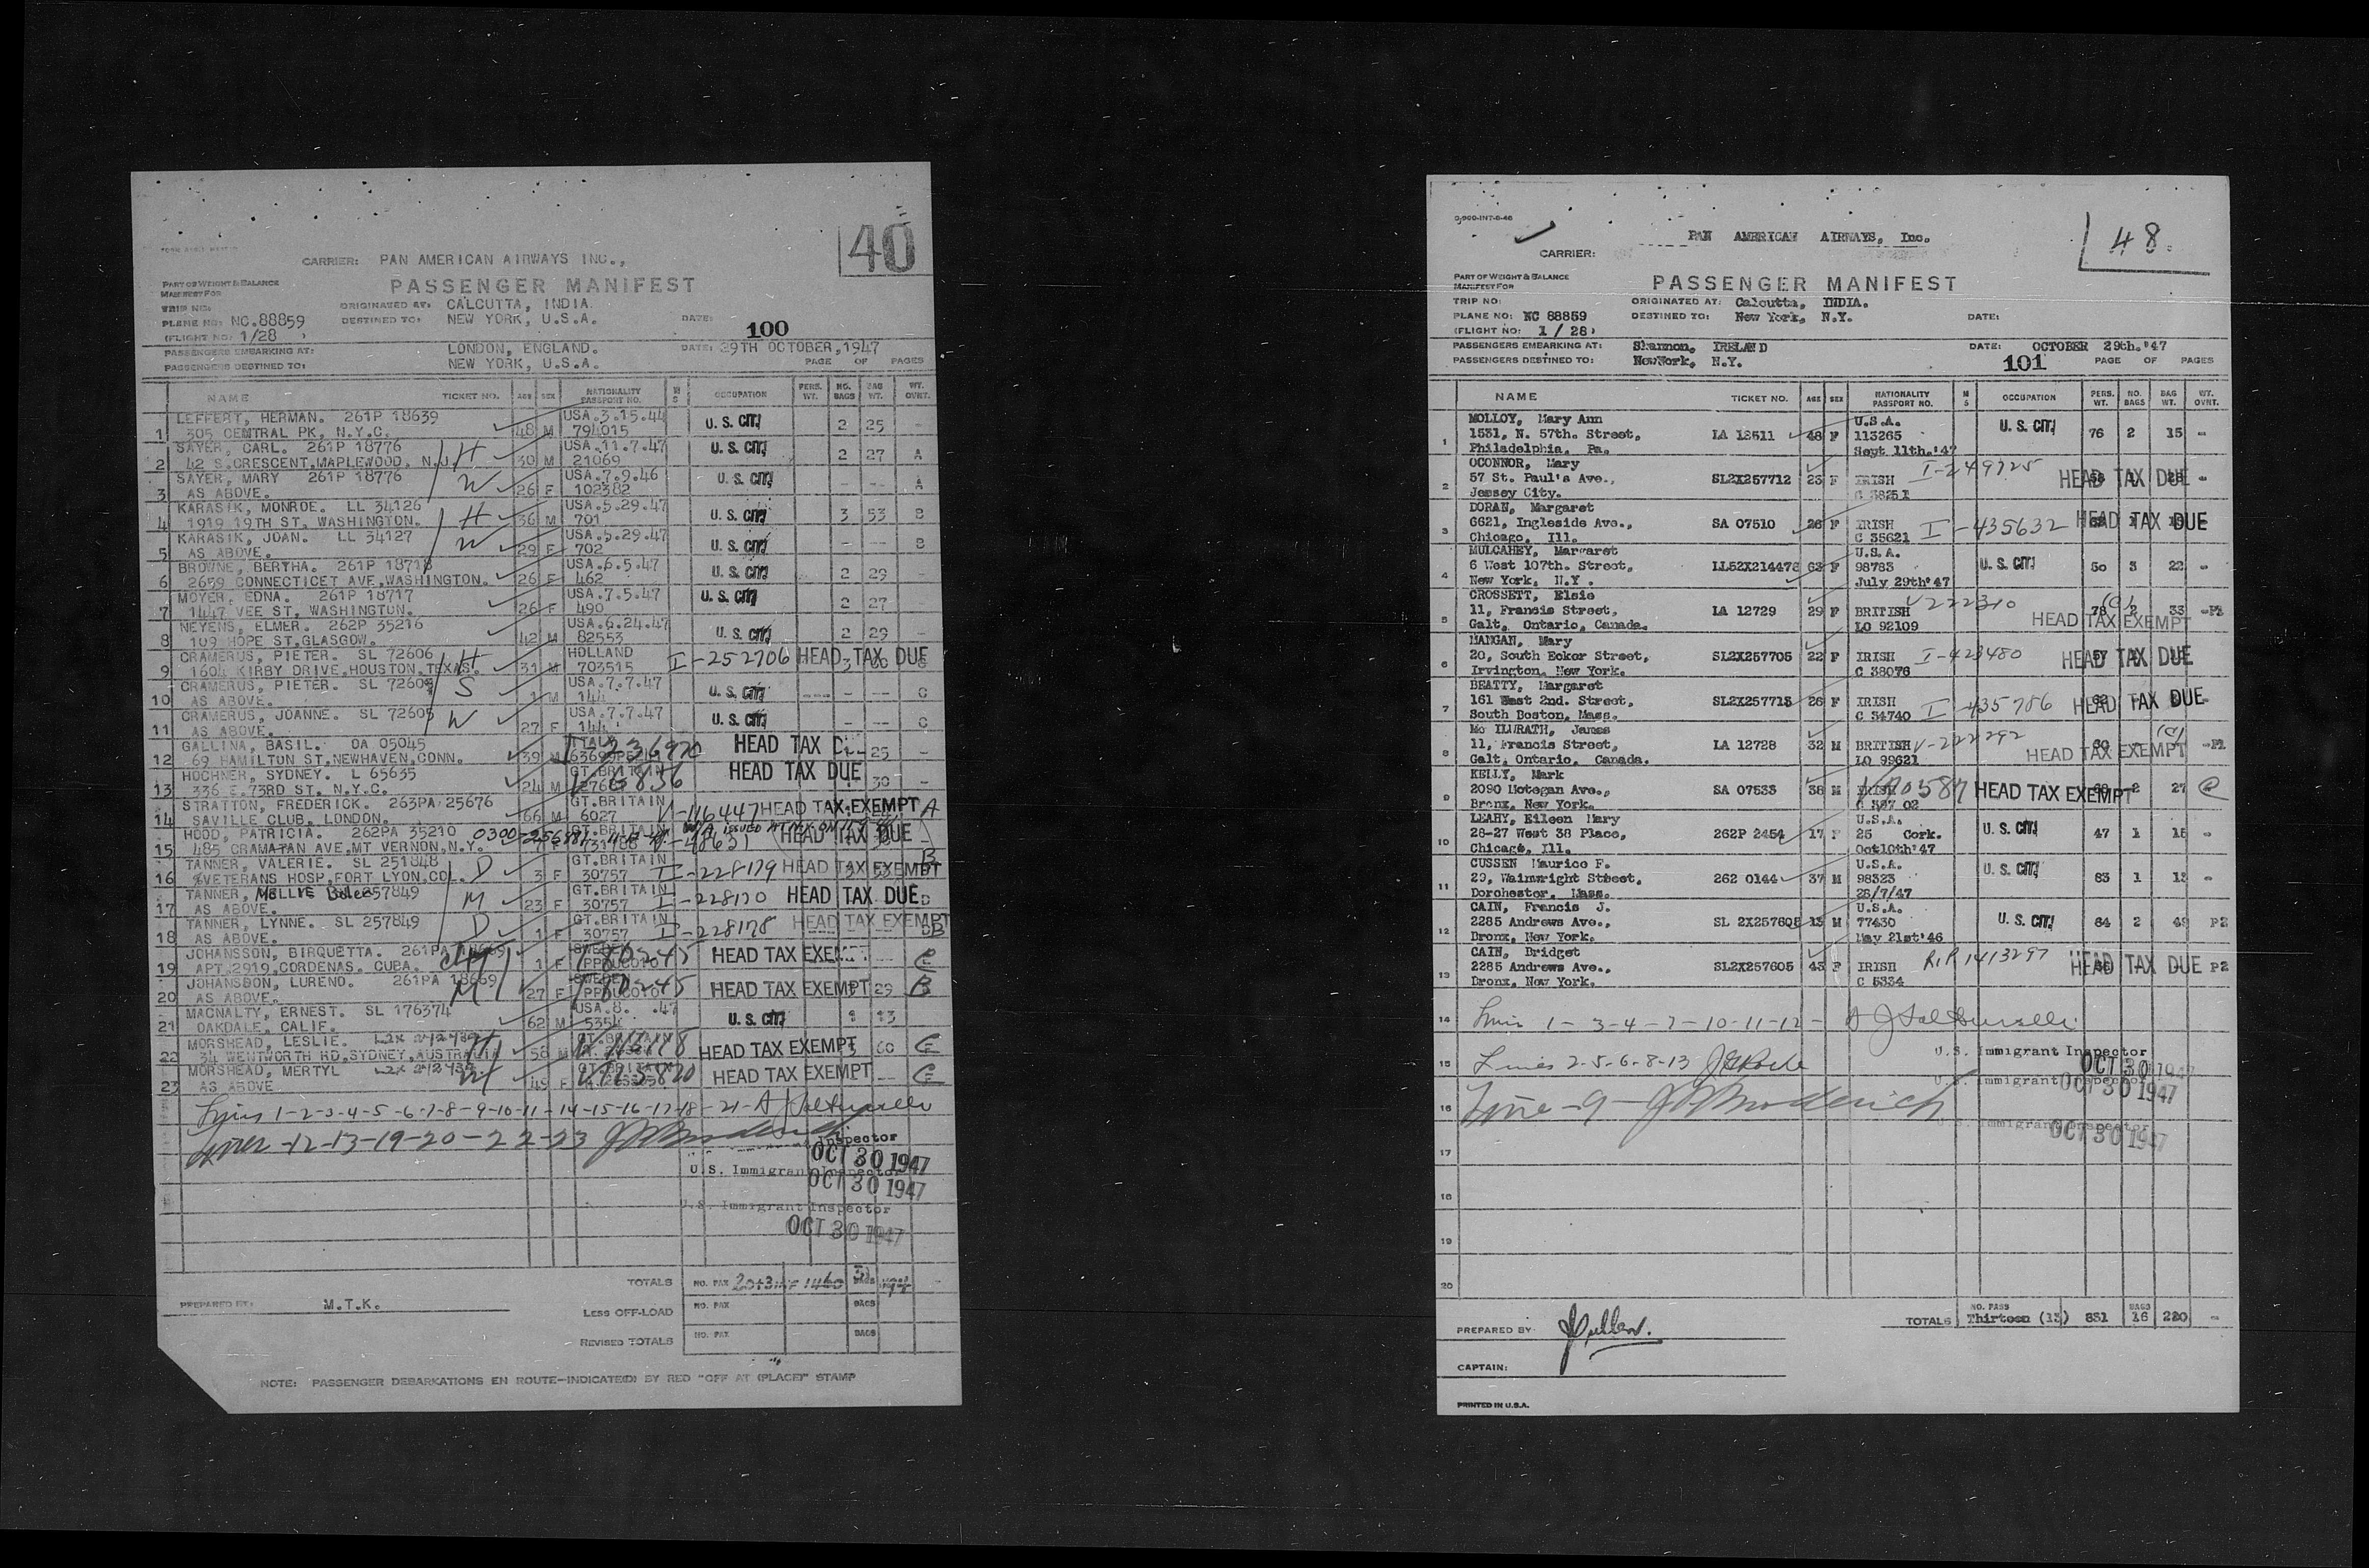 40
CARRIER: PAN AMERICAN AIRWAYS INC.,
PART OF WEIGHT & BALANCE
MANIFEST FOR
PASSENGER MANIFEST
TRIP NO:
ORIGINATED AT: CALCUTTA, INDIA.
PLANE NO: NC.88859
DESTINED TO: NEW YORK, U.S.A. DATE:
(FLIGHT NO: 1/28 )
100
PASSENGERS EMBARKING AT: LONDON, ENGLAND. DATE: 29TH OCTOBER, 1947
PASSENGERS DESTINED TO: NEW YORK, U.S.A. PAGE OF PAGES
NAME TICKET NO. AGE SEX NATIONALITY PASSPORT NO. M S OCCUPATION PERS. WT. NO. BAGS BAG WT. WT. OVNT.
LEFFERT, HERMAN. 261P 18639 USA.3.15.44
1 305 CEMTRAL PK, N.Y.C. 48 M 794015 U. S. CIT. 2 25 -
SAYER, CARL. 261P 18776 USA.11.7.47
2 42 S.CRESCENT,MAPLEWOOD. N.J. H 30 M 21069 U. S. CIT. 2 27 A
SAYER, MARY 261P 18776 USA.7.9.46
3 AS ABOVE. W 26 F 102382 U. S. CIT. - -- A
KARASIK, MONROE. LL 34126 USA.5.29.47
4 1919 19TH ST, WASHINGTON. H 36 M 701 U. S. CIT. 3 53 B
KARASIK, JOAN. LL 34127 USA.5.29.47
5 AS ABOVE. W 29 F 702 U. S. CIT. - -- B
BROWNE, BERTHA. 261P 18718 USA.6.5.47
6 2659 CONNECTICET AVE,WASHINGTON. 26 F 462 U. S. CIT. 2 29
MOYER, EDNA. 261P 18717 USA.7.5.47
7 1447 VEE ST, WASHINGTON. 26 F 490 U. S. CIT. 2 27 -
NEYENS, ELMER. 262P 35216 USA.6.24.47
8 109 HOPE ST,GLASGOW. 42 M 82553 U. S. CIT. 2 29 -
CRAMERUS, PIETER. SL 72606 HOLLAND
9 1604 KIRBY DRIVE,HOUSTON,TEXAS. H 31 M 703515 I-252706 HEAD TAX DUE
CRAMERUS, PIETER. SL 72604 USA.7.7.47
10 AS ABOVE. S 1 M 144 U. S. CIT. --- - -- C
CRAMERUS, JOANNE. SL 72605 USA.7.7.47
11 AS ABOVE. W 27 F 144 U. S. CIT. - -- C
GALLINA, BASIL. OA 05045 ITALY
12 69 HAMILTON ST,NEWHAVEN,CONN. 39 M HEAD TAX 25 -
HOCHNER, SYDNEY. L 65635 GT.BRITAIN
13 336 E.73RD ST. N.Y.C. 24 M HEAD TAX DUE 30 -
STRATTON, FREDERICK. 263PA 25676 GT.BRITAIN
14 SAVILLE CLUB, LONDON. 66 M 6027 V-116447 HEAD TAX EXEMPT A
HOOD, PATRICIA. 262PA 35210 GT.BRITAIN
15 485 CRAMATAN AVE,MT VERNON,N.Y. HEAD TAX DUE
TANNER, VALERIE. SL 251848 GT.BRITAIN
16 %VETERANS HOSP,FORT LYON,COL. D 3 F 30757 I-228179 HEAD TAX EXEMPT B
TANNER, MOLLIE 257849 GT.BRITAIN
17 AS ABOVE. M 23 F 30757 I-228170 HEAD TAX DUE B
TANNER, LYNNE. SL 257849 GT.BRITAIN
18 AS ABOVE. D 1 F 30757 I-228178 HEAD TAX EXEMPT B
JOHANSSON, BIRQUETTA. 261PA 18669 SWEDEN
19 APT,2919,CORDENAS. CUBA. 1 F HEAD TAX EXEMPT
JOHANSSON, LURENO. 261PA 18669
20 AS ABOVE. M 27 F HEAD TAX EXEMPT 29 B
MACNALTY, ERNEST. SL 176374 USA.8. .47
21 OAKDALE, CALIF. 62 M 5354 U. S. CIT. 1 13
MORSHEAD, LESLIE. GT.BRITAIN
22 34 WENTWORTH RD,SYDNEY,AUSTRALIA H 58 M HEAD TAX EXEMPT 60 C
MORSHEAD, MERTYL GT.BRITAIN
23 AS ABOVE W 49 F HEAD TAX EXEMPT -- C
Lines 1-2-3-4-5-6-7-8-9-10-11-14-15-16-17-18-21-
Lines-12-13-19-20-22-23
Inspector
OCT 30 1947
U.S. Immigrant Inspector
OCT 30 1947
U.S. Immigrant Inspector
OCT 30 1947
TOTALS NO. PAX BAGS
PREPARED BY: M.T.K.
LESS OFF-LOAD NO. PAX BAGS
REVISED TOTALS NO. PAX BAGS
NOTE: PASSENGER DEBARKATIONS EN ROUTE-INDICATED BY RED "OFF AT (PLACE)" STAMP
48.
PAN AMERICAN AIRWAYS, Inc.
CARRIER:
PART OF WEIGHT & BALANCE
MANIFEST FOR
PASSENGER MANIFEST
TRIP NO: ORIGINATED AT: Calcutta, INDIA.
PLANE NO: NC 88859 DESTINED TO: New York, N.Y. DATE:
(FLIGHT NO: 1 / 28)
PASSENGERS EMBARKING AT: Shannon, IRELAND DATE: OCTOBER 29th.'47
PASSENGERS DESTINED TO: NewYork, N.Y. 101 PAGE OF PAGES
NAME TICKET NO. AGE SEX NATIONALITY PASSPORT NO. M S OCCUPATION PERS. WT. NO. BAGS BAG WT. WT. OVNT.
MOLLOY, Mary Ann U.S.A.
1 1531, N. 57th. Street, LA 13511 48 F 113265 U. S. CIT. 76 2 15 -
Philadelphia, Pa. Sept 11th.'47
OCONNOR, Mary
2 57 St. Paul's Ave., SL2X257712 23 F IRISH I-249725 HEAD TAX DUE -
Jessey City. C 38251
DORAN, Margaret
3 6621, Ingleside Ave., SA 07510 26 F IRISH I-435632 HEAD TAX DUE
Chicago, Ill. C 35621
MULCAHEY, Margaret U.S.A.
4 6 West 107th. Street, LL52X214478 63 F 98783 U. S. CIT. 50 3 22 -
New York, N.Y. July 29th'47
CROSSETT, Elsie
5 11, Francis Street, LA 12729 29 F BRITISH V-222310 78 2 33
Galt, Ontario, Canada. LO 92109 HEAD TAX EXEMPT
MANGAN, Mary
6 20, South Ecker Street, SL2X257705 22 F IRISH I-423480 HEAD TAX DUE
Irvington, New York. C 38076
BEATTY, Margaret
7 161 West 2nd. Street, SL2X257713 26 F IRISH I-435786 HEAD TAX DUE
South Boston, Mass. C 34740
Mc ILURATH, James
8 11, Francis Street, LA 12728 32 M BRITISH V-222292 HEAD TAX EXEMPT
Galt, Ontario, Canada. LO 99621
KELLY, Mark
9 2090 Motegan Ave., SA 07533 38 M IRISH HEAD TAX EXEMPT 27
Bronx, New York.
LEAHY, Eileen Mary U.S.A.
10 28-27 West 38 Place, 262P 2454 17 F 25 Cork. U. S. CIT. 47 1 15 -
Chicago, Ill. Oct10th'47
CUSSEN Maurice F. U.S.A.
11 29, Wainwright Street, 262 0144 37 M 98323 U. S. CIT. 83 1 13 -
Dorchester, Mass. 28/7/47
CAIN, Francis J. U.S.A.
12 2285 Andrews Ave., SL 2X257605 13 M 77430 U. S. CIT. 84 2 49 P2
Bronx, New York. May 21st'46
CAIN, Bridget
13 2285 Andrews Ave., SL2X257605 43 F IRISH R.P. 1413297 HEAD TAX DUE P2
Bronx, New York. C 5334
14 Lines 1-3-4-7-10-11-12-
15 Lines 2-5-6-8-13
U.S. Immigrant Inspector
OCT 30 1947
U.S. Immigrant Inspector
OCT 30 1947
16 Line-9-
U.S. Immigrant Inspector
OCT 30 1947
17
18
19
20
TOTALS NO. PASS Thirteen (13) 851 BAGS 16 220 -
PREPARED BY
CAPTAIN:
PRINTED IN U.S.A.